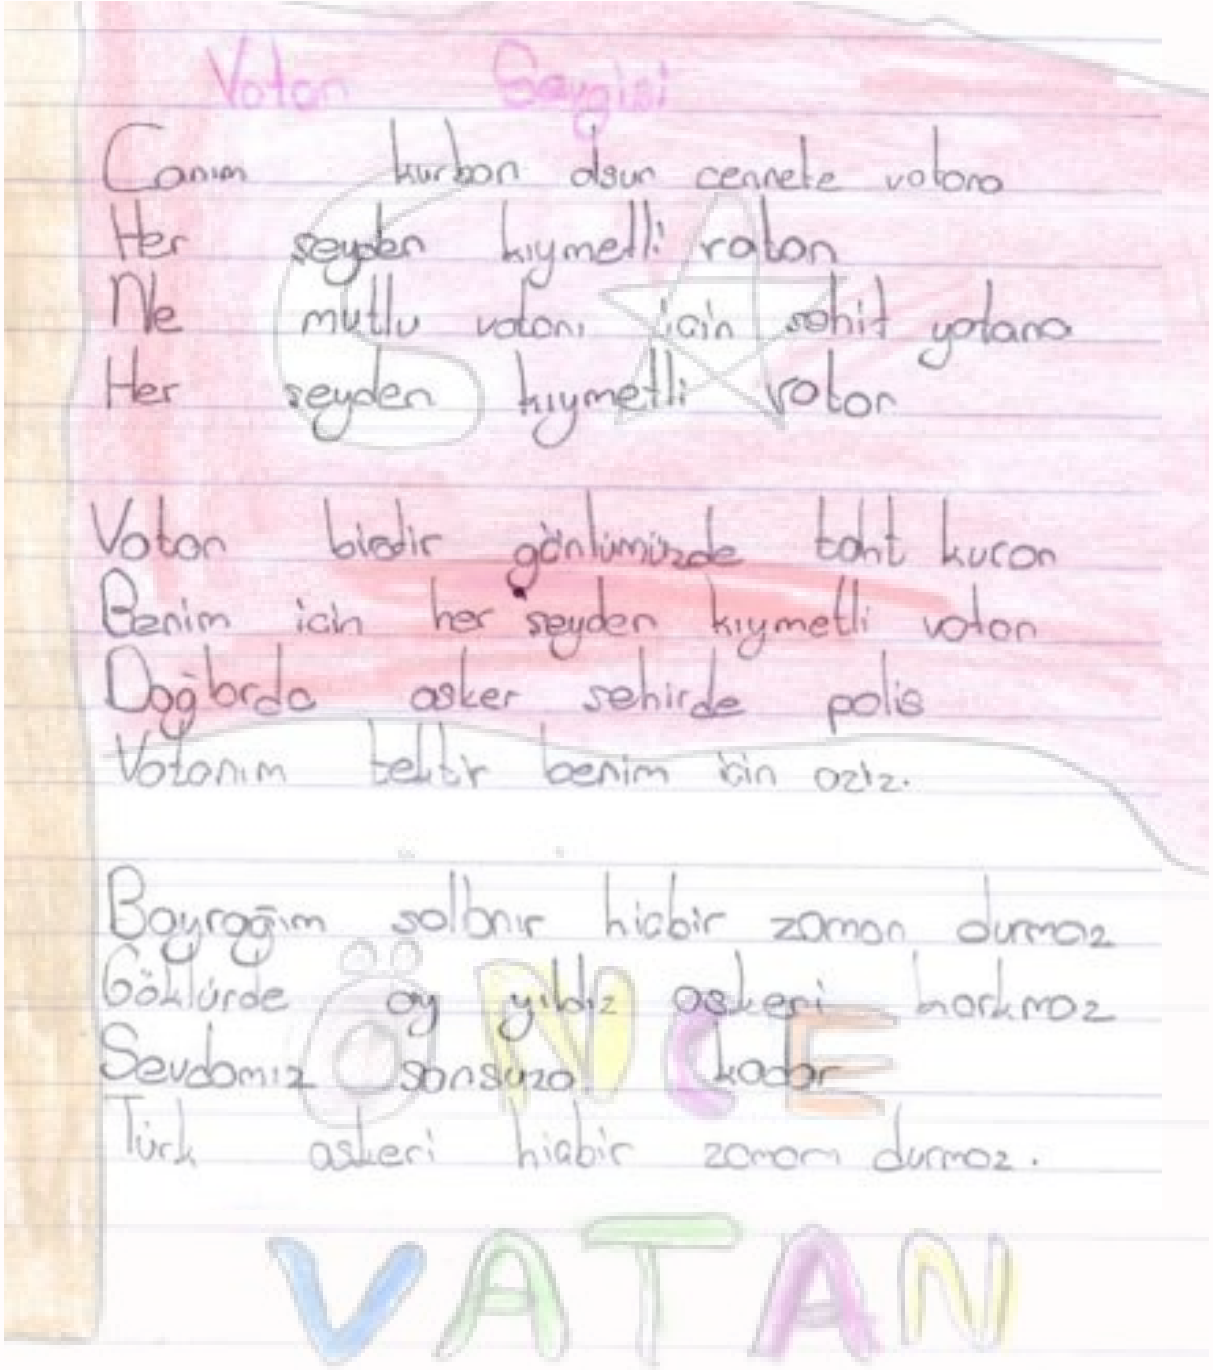 Vatan Saygisi
Canım kurban olsun cennete vatana
Her seyden kıymetli vatan
Ne mutlu vatanı icin sehit yatana
Her seyden kıymetli vatan
Vatan bizdir gönlümüzde taht kuran
Benim icin her seyden kıymetli vatan
Dağlarda asker sehirde polis
Vatanım tektir benim icin aziz.
Bayrağım sallanır hicbir zaman durmaz
Göklürde ay yıldız askeri korkmaz
Sevdamız sonsuza kadar
Türk askeri hicbir zaman durmaz.
ÖNCE
VATAN